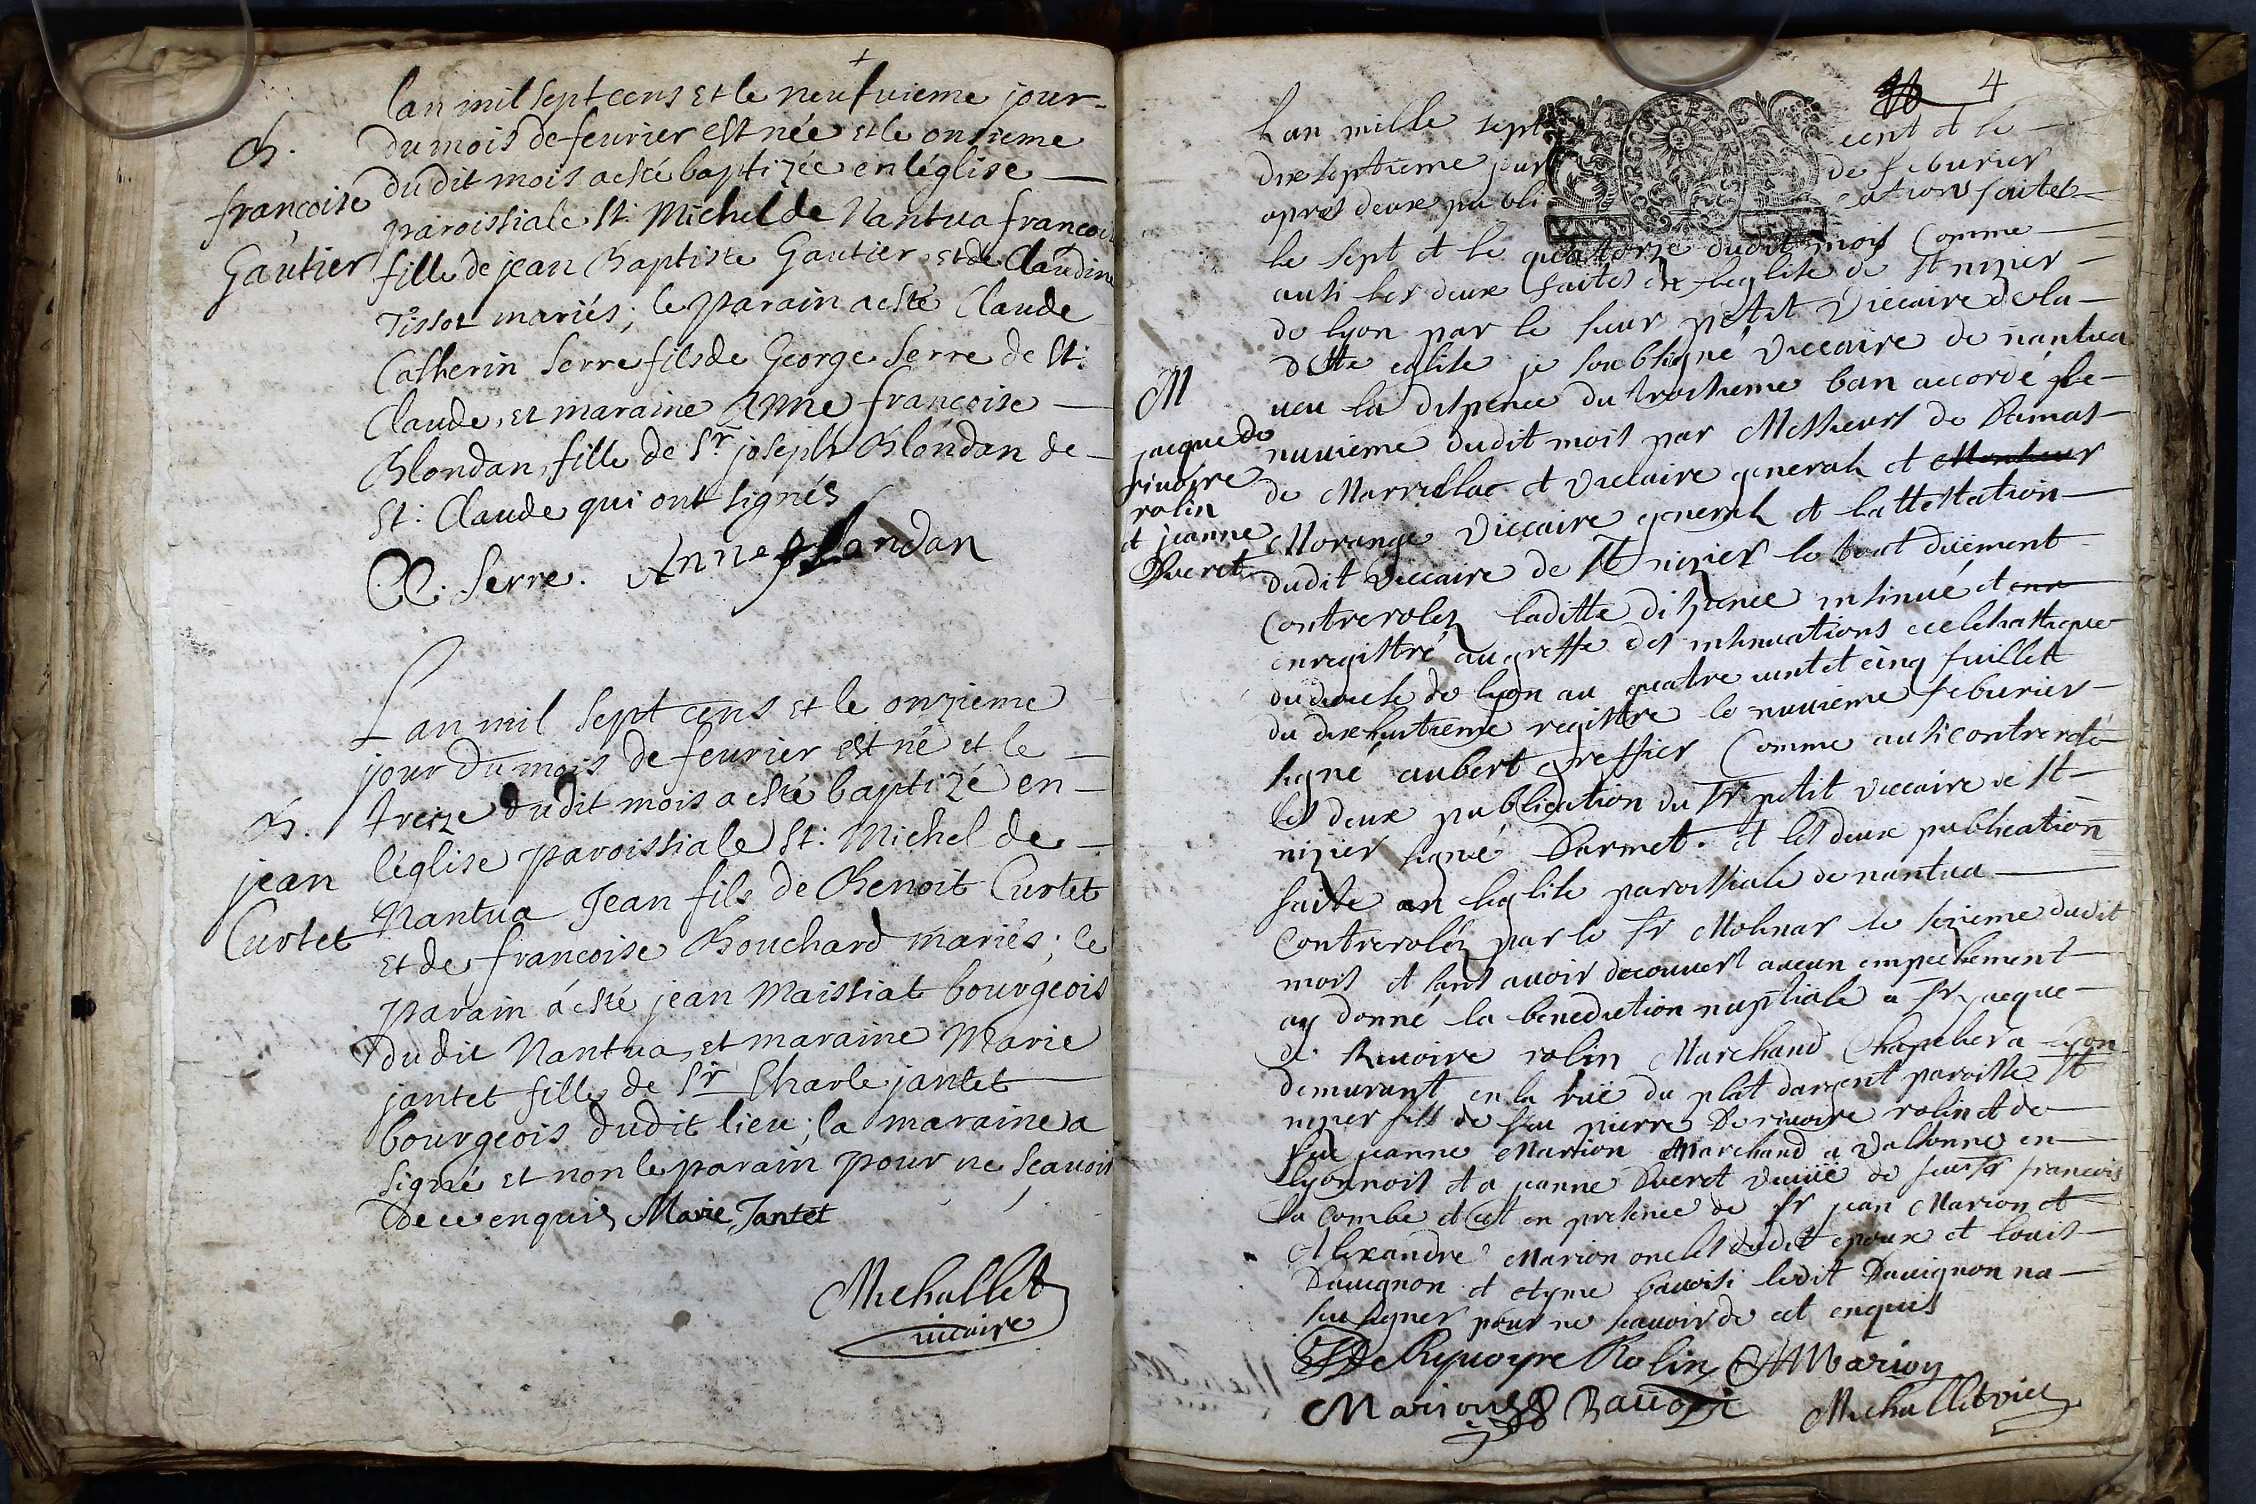 lan mil sept cens et le neufuieme jour
du mois de feurier est née et le onsieme
du dit mois a esté baptizée en léglise
paroissiale st: Michel de Nantua francoi
fille de jean Baptiste Gautier et de Claudine
Tissot mariés; le parain a esté Claude
Catherin Serre fils de George Serre de St:
Claude, et maraine Anne françoise
Blondan, fille de Sr. joseph Blondan de
St: Claude qui ont signés
B.
françoise
Gautier
CC. Serre. Anne Blandan
Lan mil sept cens et le onzieme
jour du mois de feurier est né et le
treize du dit mois a esté baptizé en
léglise paroissiale St: Michel de
Nantua Jean fils de Benoit Curtet
et de francoise Bouchard mariés; le
parain á esté jean Maissiat bourgeois
dudit Nantua, et maraine Marie
jantet fille de Sr. Charle jantet
bourgeois dudit lieu; la maraine a
signé et non le parain pour ne scauoir
de ce enquis Marie Jantet
B.
jean
Curtet
Michallet
uicaire
4
Lan mille sept cent et le
dixseptieme jour de feburier
apres deux publications faites
le sept et le quatorze dudit mois Comme
ausi les deux faites en leglise de St nizier
de lyon par le sieur petit viccaire de la
ditte eglise je soubsigné viccaire de nantua
ueu la dispence du troisieme ban accordé le
nuuieme dudit mois par Messieurs de Damas
de Marrillac et viccaire general et Monsieur
Morange viccaire general et lattestation
dudit viccaire de St nizier le tout düement
Controrolez laditte dispence insinué et enr
enregistré au greffe des insinuations ecclesiastique
du diocese de lyon au quatre uint et cinq fuillet
du dixhuitieme registre le nuuieme feburier
signé aubert greffier Comme ausi controrolé
les deux publication du Sr petit viccaire de St
nizier signé Darmet. et les deux publication
faite en leglise paroissiale de nantua
Controrolez par le Sr Molinar le sezieme dudit
mois et sans auoir decouuert aucun empechement
ay donné la benediction nuptiale a Sr jacque
de Riuoire rolin Marchand Chapelier a lyon
demurant en la rüe du plat dargent paroisse St
nizier fils de feu pierre De riuoire rolin et de
jeanne Marion Marchand a valsonne en
lyonnois et a jeanne Dueret veuüe de feu Sr francois
la Combe et cet en presence de Sr jean Marion et
Alexandre Marion oncles dudit epoux et louis
Dauignon et etyme bauosi ledit Dauignon na
su signer pour ne scauoir de cet enquis
M
jacque de
riuoire
rolin
et jeanne
Dueret
De Ryuoyre Rolin Marion
Marion Bauosi Michallet vice